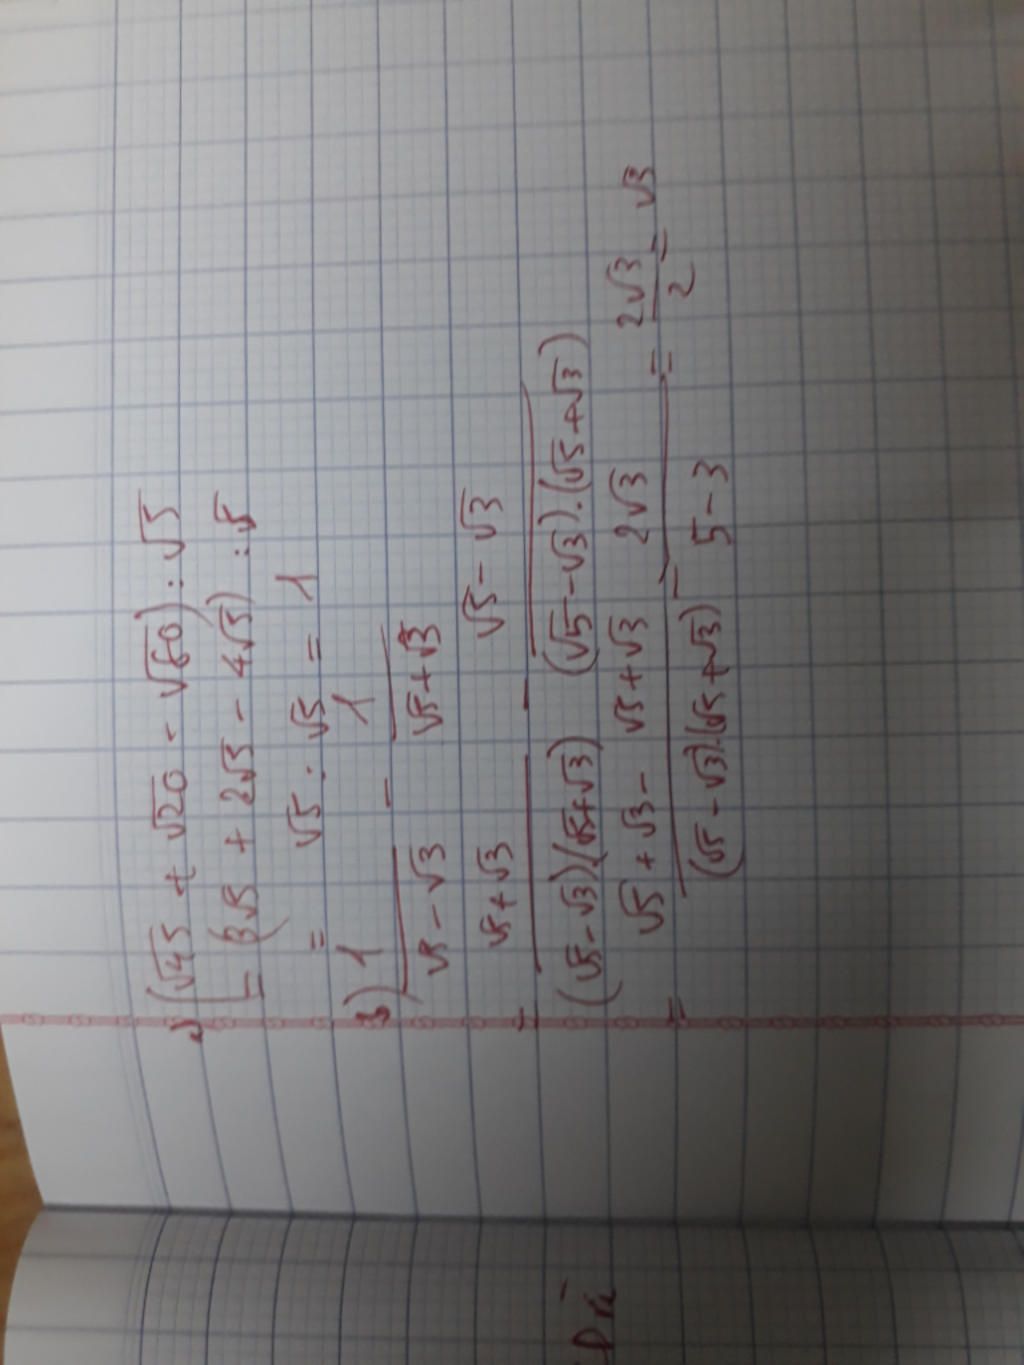 a) (√45 + √20 - √80) : √5
= (3√5 + 2√5 - 4√5) : √5
= √5 : √5 = 1
b) 1/(√5 - √3) - 1/(√5 + √3)
= (√5 + √3)/((√5 - √3)(√5 + √3)) - (√5 - √3)/((√5 - √3).(√5 + √3))
= (√5 + √3 - √5 + √3)/((√5 - √3).(√5 + √3)) = 2√3/(5 - 3) = 2√3/2 = √3